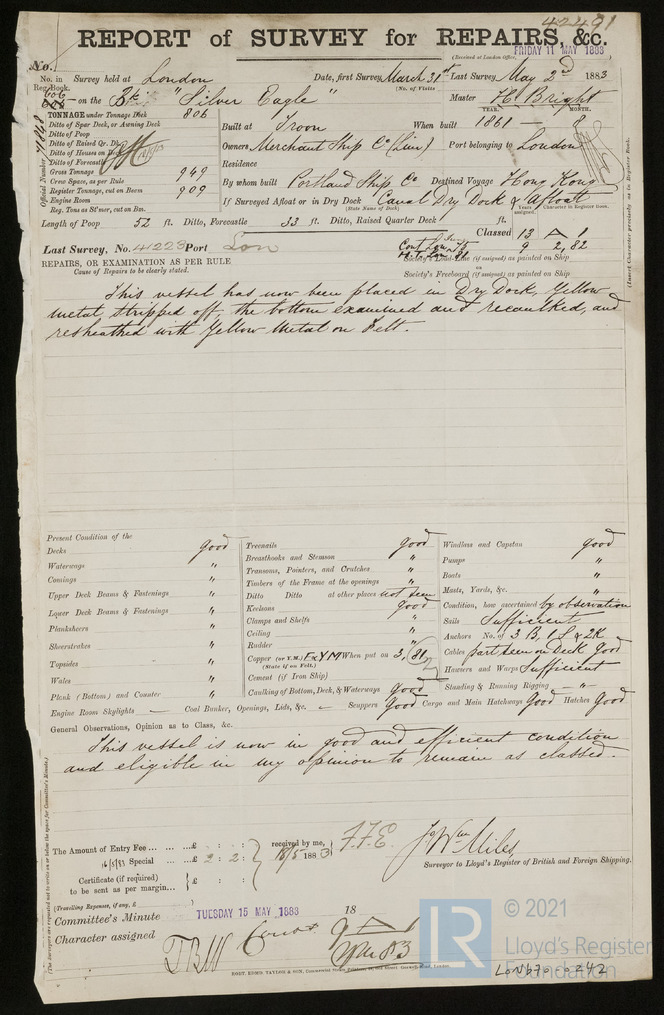 42491
REPORT of SURVEY for REPAIRS, &c.
(Received at London Office,
FRIDAY 11 MAY 1883
No.
No. in Reg. Book.
Survey held at London Date, first Survey March 31st Last Survey May 2nd 1883
(No. of Visits
606 on the Bk "Silver Eagle" Master H. Bright
TONNAGE under Tonnage Deck 806
Ditto of Spar Deck, or Awning Deck
Ditto of Poop
Ditto of Raised Qr. Dk.
Ditto of Houses on Deck
Ditto of Forecastle
Gross Tonnage 949
Crew Space, as per Rule
Register Tonnage, cut on Beam 909
Engine Room
Reg. Tons as St'mer, cut on Bm.
Official Number
YEAR. MONTH.
Built at Troon When built 1861 — 8
Owners Merchant Ship Co (Lim) Port belonging to London
Residence
By whom built Portland Ship Co Destined Voyage Hong Kong
If Surveyed Afloat or in Dry Dock Canal Dry Dock & Afloat
(State Name of Dock)
Years assigned. Character in Register Book.
(Insert Character precisely as in Register Book.
Length of Poop 52 ft. Ditto, Forecastle 33 ft. Ditto, Raised Quarter Deck ft.
Classed 13 A 1
9 2,82
Last Survey, No. 41223 Port Lon
REPAIRS, OR EXAMINATION AS PER RULE
Cause of Repairs to be clearly stated.
Society's Load-line (if assigned) as painted on Ship
or
Society's Freeboard (if assigned) as painted on Ship
This vessel has now been placed in Dry Dock, Yellow
metal stripped off, the bottom examined and recaulked, and
resheathed with Yellow Metal on Felt.
Present Condition of the
Decks good
Waterways "
Comings "
Upper Deck Beams & Fastenings "
Lower Deck Beams & Fastenings "
Planksheers "
Sheerstrakes "
Topsides "
Wales "
Plank (Bottom) and Counter "
Treenails good
Breasthooks and Stemson "
Transoms, Pointers, and Crutches "
Timbers of the Frame at the openings "
Ditto Ditto at other places not seen
Keelsons good
Clamps and Shelfs "
Ceiling "
Rudder "
Copper (or Y.M.) F & YM When put on 3, 81
(State if on Felt.)
Cement (if Iron Ship)
Caulking of Bottom, Deck, & Waterways good
Windlass and Capstan good
Pumps "
Boats "
Masts, Yards, &c. "
Condition, how ascertained by observation
Sails Sufficient
Anchors No. of 3 B. 1 S & 2K
Cables part seen on Deck good
Hawsers and Warps Sufficient
Standing & Running Rigging — " —
Engine Room Skylights — Coal Bunker, Openings, Lids, &c. — Scuppers Good Cargo and Main Hatchways Good Hatches Good
General Observations, Opinion as to Class, &c.
This vessel is now in good and efficient condition
and eligible in my opinion to remain as classed.
The Amount of Entry Fee ... £ : :
16/5/83 Special ... £ 2 : 2 :
Certificate (if required) to be sent as per margin... £ : :
received by me,
16/5 1883
F.F.E.
Jo Wm Miles
Surveyor to Lloyd's Register of British and Foreign Shipping.
(Travelling Expenses, if any, £
Committee's Minute TUESDAY 15 MAY 1883 18
Character assigned
Cont 9 A 1
(The Surveyors are requested not to write on or below the space for Committee's Minute.)
LR © 2021
Lloyd's Register
Foundation
LON670-0242